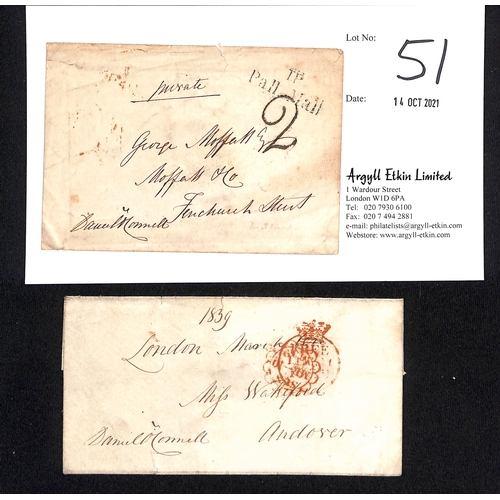 Lot No:
51
Date:
14 OCT 2021
Argyll Etkin Limited
1 Wardour Street
London W1D 6PA
Tel: 020 7930 6100
Fax: 020 7 494 2881
e-mail: philatelists@argyll-etkin.com
Webstore: www.argyll-etkin.com
private
TP
Pall Mall
2
George Moffatt Esq
Moffatt & Co
Fenchurch Street
Daniel O'Connell
1839
London March
FREE
Miss Wakeford
Andover
Daniel O'Connell